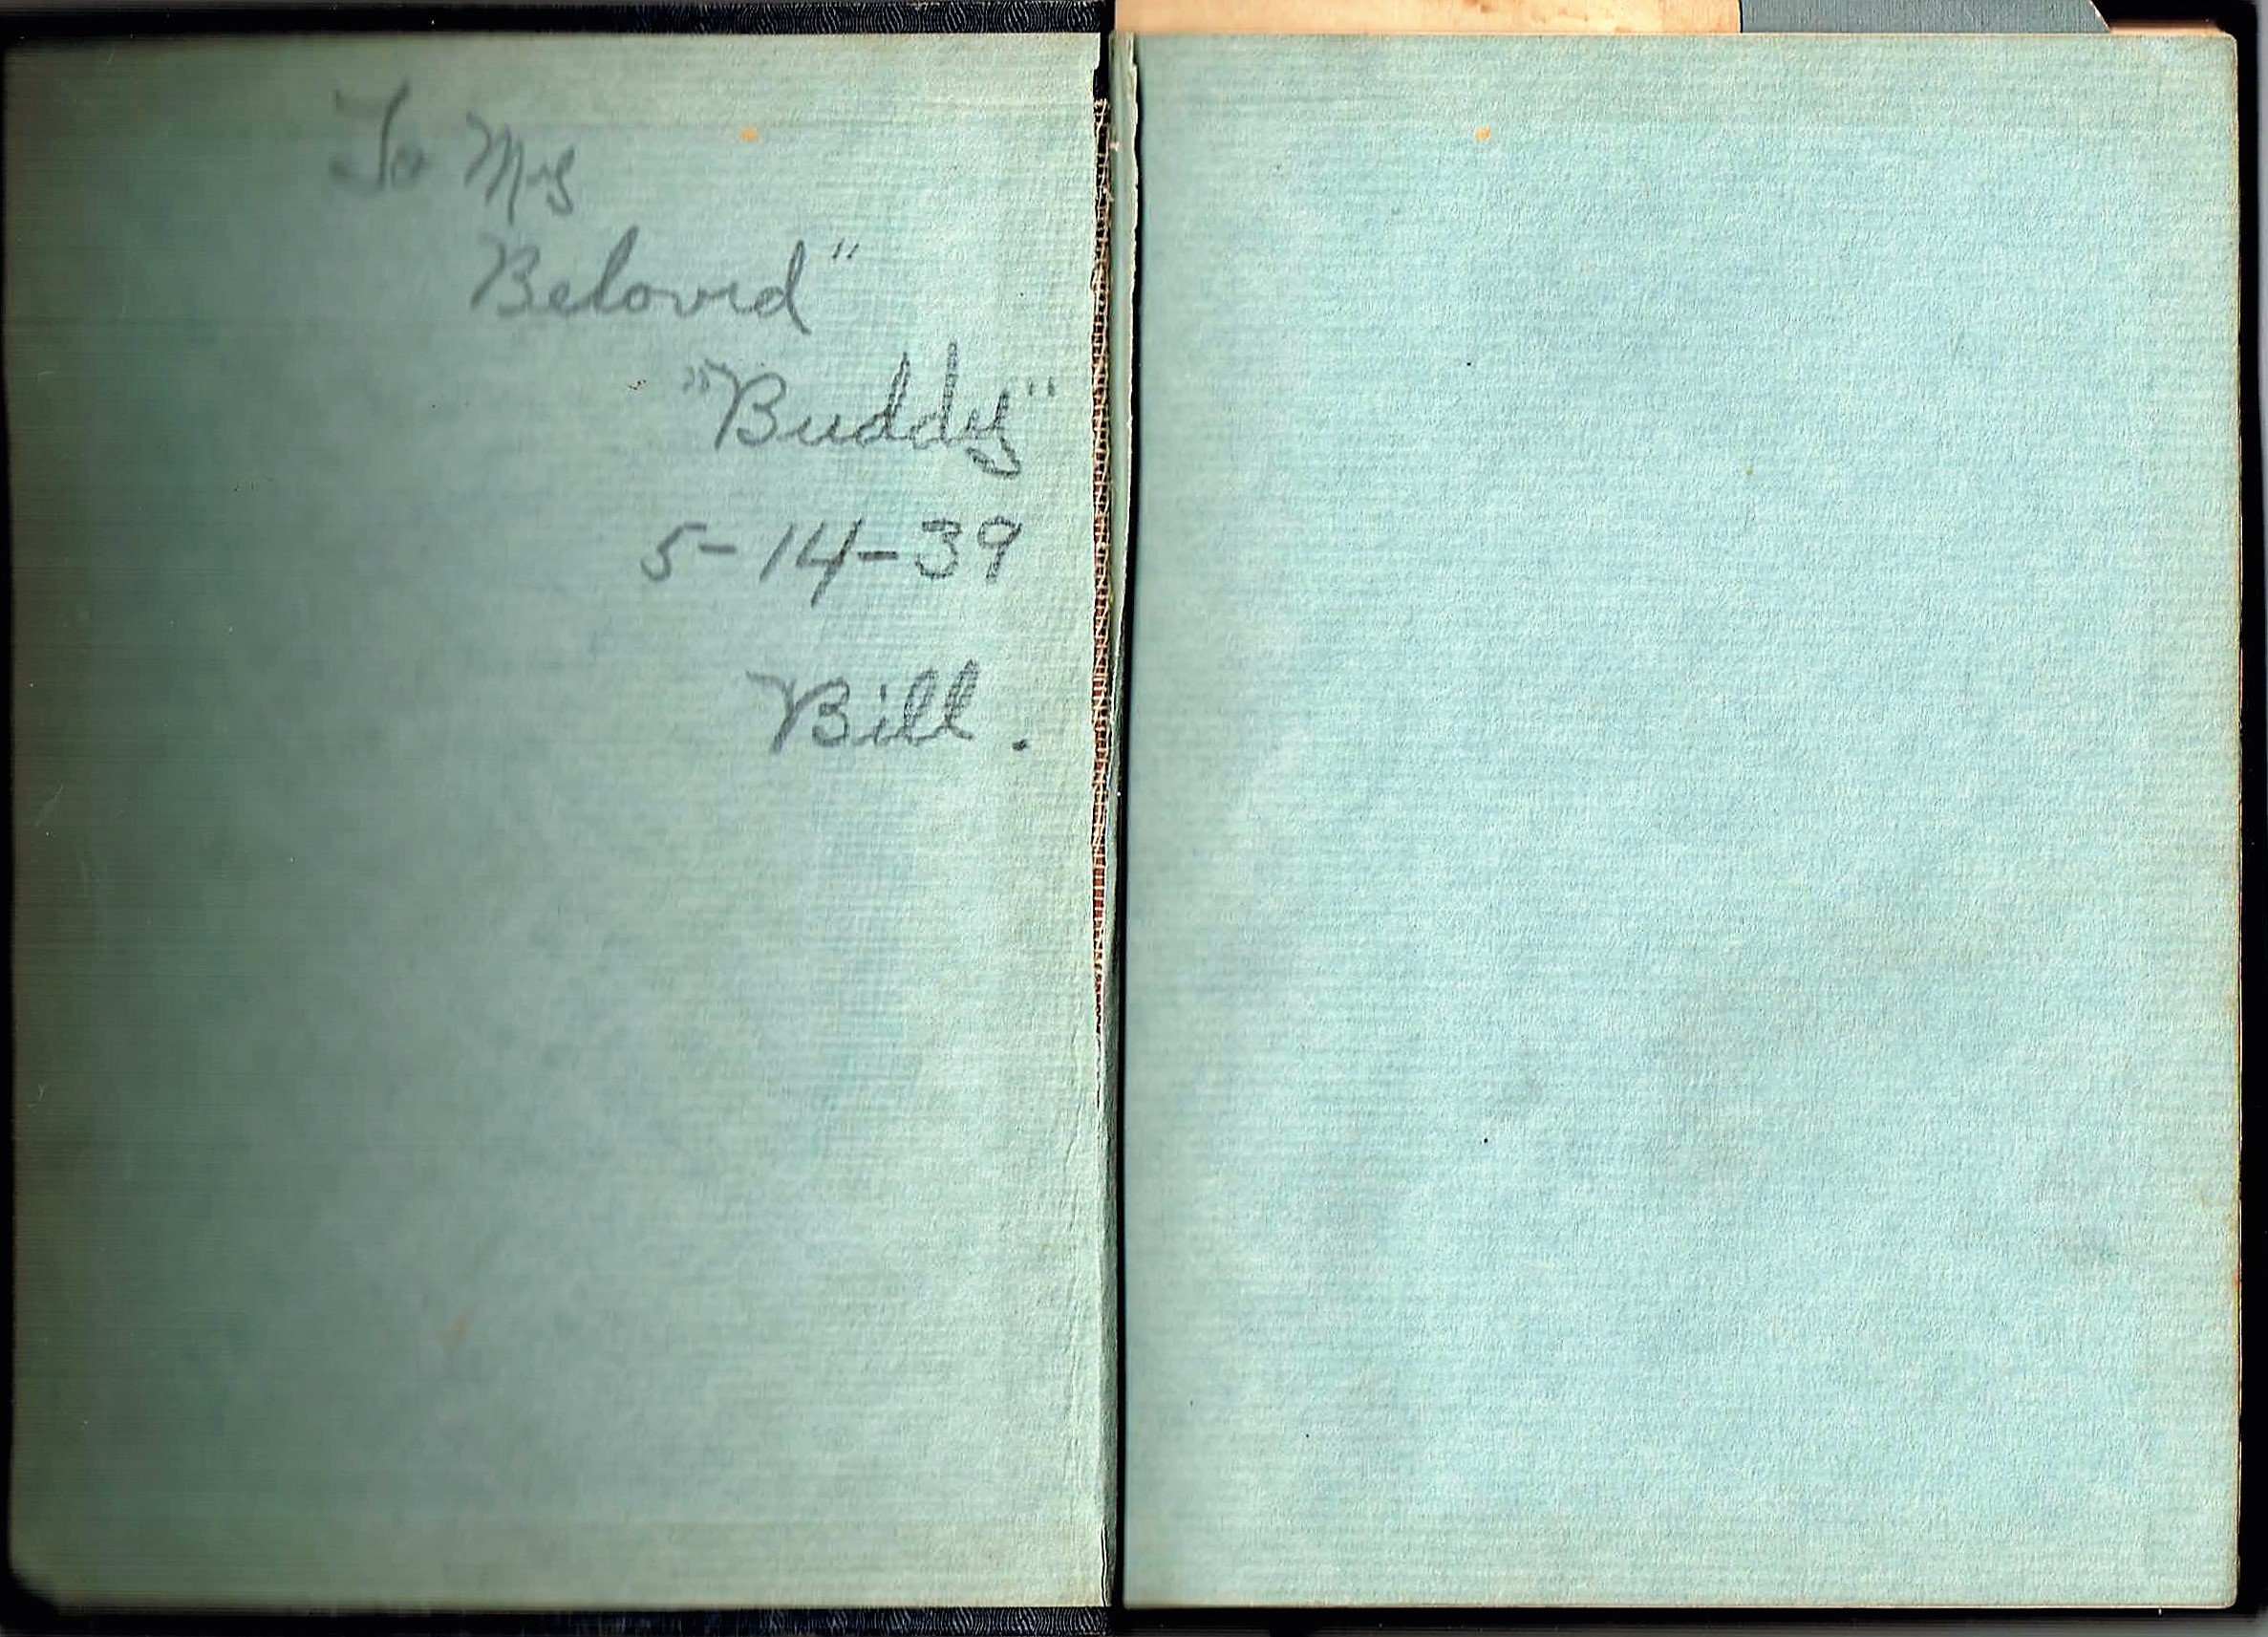 To My
Beloved"
"Buddy"
5-14-39
Bill.